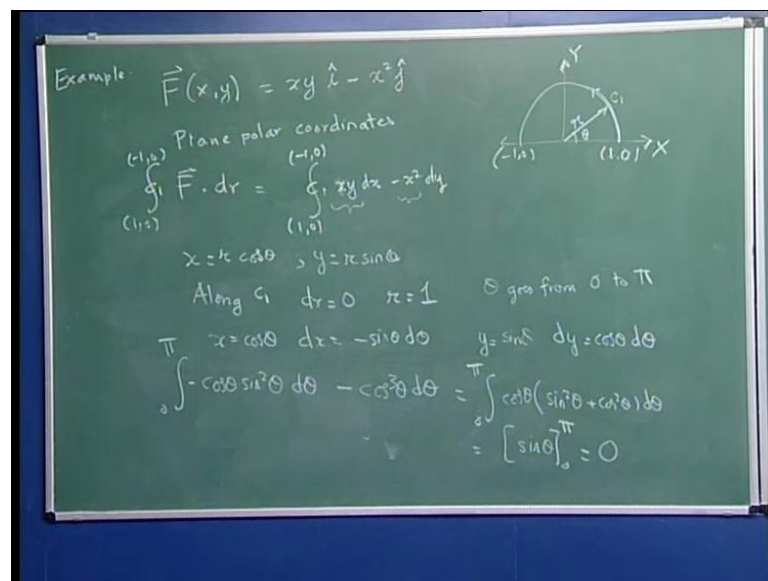 Example: F⃗(x,y) = xy î − x² ĵ
Plane polar coordinates
(-1,0) (-1,0)
∮ C₁ F⃗. dr = ∮ C₁ xy dx − x² dy
(1,0) (1,0)
x = r cosθ , y = r sinθ
Along C₁ dr = 0 r = 1 θ goes from 0 to π
x = cosθ dx = − sinθ dθ y = sinθ dy = cosθ dθ
∫₀^π − cosθ sin²θ dθ − cos³θ dθ = ∫₀^π cosθ (sin²θ + cos²θ) dθ
= [sinθ]₀^π = 0
Y
C₁
r
θ
(-1,0) (1,0) X